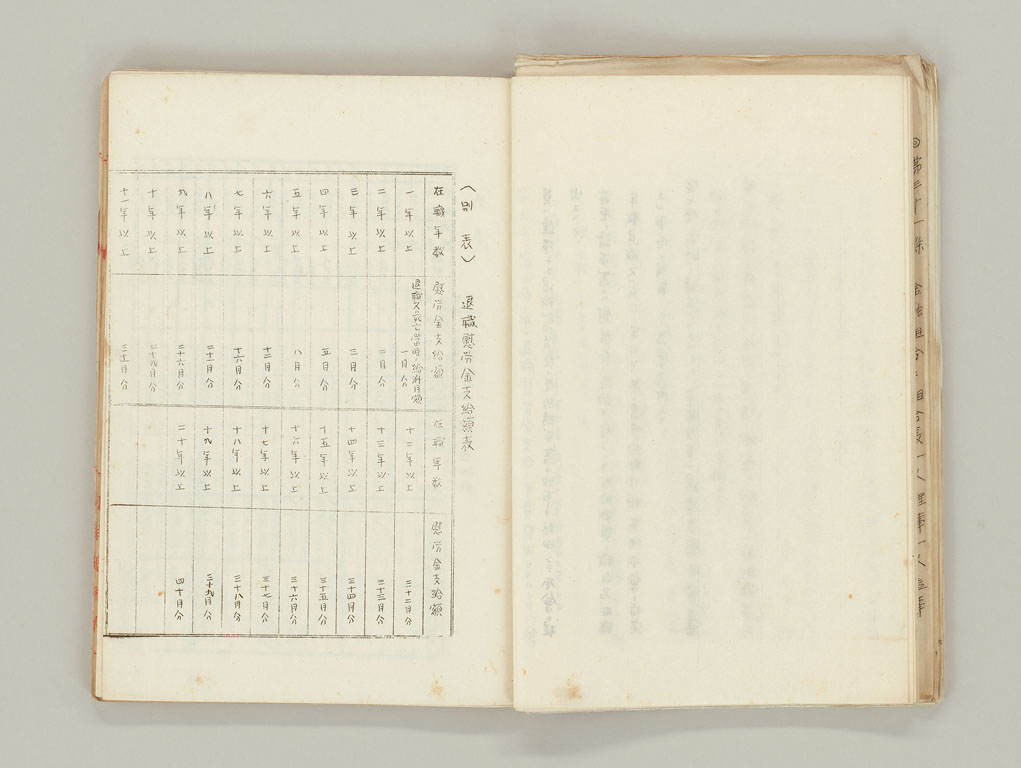 (別表)　退職慰労金支給額表
在職年数　慰労金支給額　在職年数　慰労金支給額
一年以上　退職又ハ死亡當時ノ給料月額　一月分　十二年以上　三十二月分
二年以上　二月分　十三年以上　三十三月分
三年以上　三月分　十四年以上　三十四月分
四年以上　五月分　十五年以上　三十五月分
五年以上　八月分　十六年以上　三十六月分
六年以上　十二月分　十七年以上　三十七月分
七年以上　十六月分　十八年以上　三十八月分
八年以上　二十一月分　十九年以上　三十九月分
九年以上　二十六月分　二十年以上　四十月分
十年以上　二十九月分
十一年以上　三十一月分